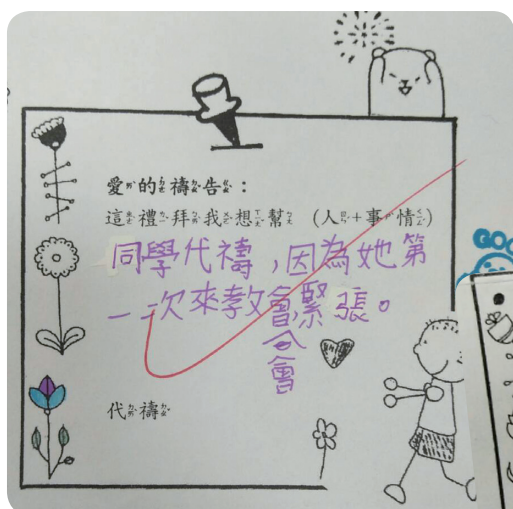 愛的禱告:
這禮拜我想幫 (人+事情)
同學代禱,因為她第
一次來教會,緊張。
會
代禱
GOO